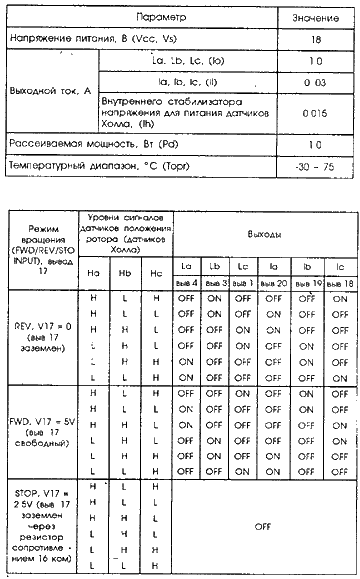 Параметр Значение
Напряжение питания, В (Vcc, Vs) 18
Выходной ток, А
La, Lb, Lc, (Io) 1 0
Ia, Ib, Ic, (Il) 0 03
Внутреннего стабилизатора
напряжения для питания датчиков
Холла, (Ih) 0 015
Рассеиваемая мощность, Вт (Pd) 1 0
Температурный диапазон, °С (Topr) -30 – 75
Режим
вращения
(FWD/REV/STO
INPUT), вывод
17
Уровни сигналов
датчиков положения
ротора (датчиков
Холла)
Выходы
Ha Hb Hc La Lb Lc Ia Ib Ic
выв 4 выв 3 выв 1 выв 20 выв 19 выв 18
REV, V17 = 0
(выв 17
заземлен)
H L H OFF ON OFF OFF OFF ON
H L L OFF ON OFF ON OFF OFF
H H L OFF OFF ON ON OFF OFF
L H L OFF OFF ON OFF ON OFF
L H H ON OFF OFF OFF ON OFF
L L H ON OFF OFF OFF OFF ON
FWD, V17 = 5V
(выв 17
свободный)
H L H OFF OFF ON OFF ON OFF
H L L ON OFF OFF OFF ON OFF
H H L ON OFF OFF OFF OFF ON
L H L OFF ON OFF OFF OFF ON
L H H OFF ON OFF ON OFF OFF
L L H OFF OFF ON ON OFF OFF
STOP, V17 =
2 5V (выв 17
заземлен
через
резистор
сопротивле -
нием 16 ком)
H L H
H L L
H H L
L H L
L H H
L L H
OFF